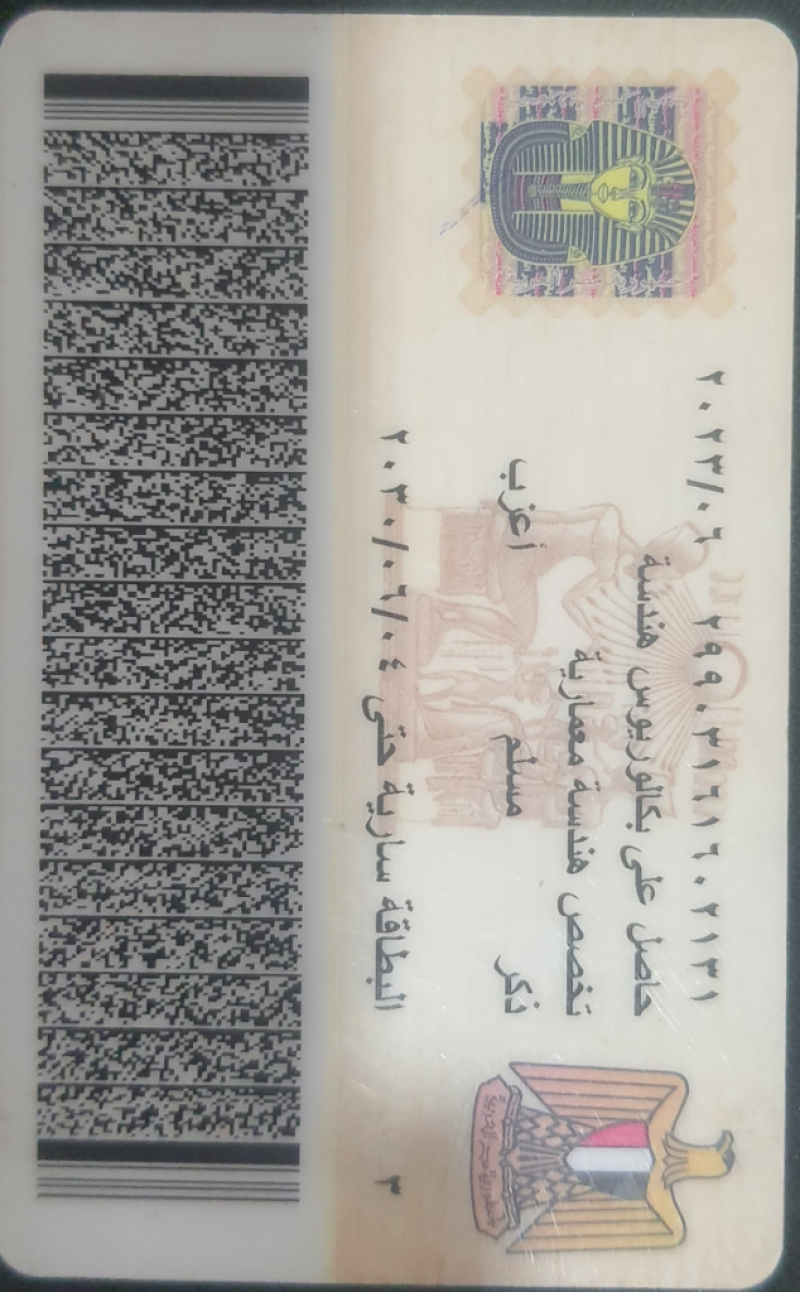 ٢٩٩٠٣١٦١٦٠٢١٣١ ٢٠٢٣/٠٦
حاصل على بكالوريوس هندسة
تخصص هندسة معمارية
ذكر مسلم أعزب
البطاقة سارية حتى ٢٠٣٠/٠٦/٠٤
٣